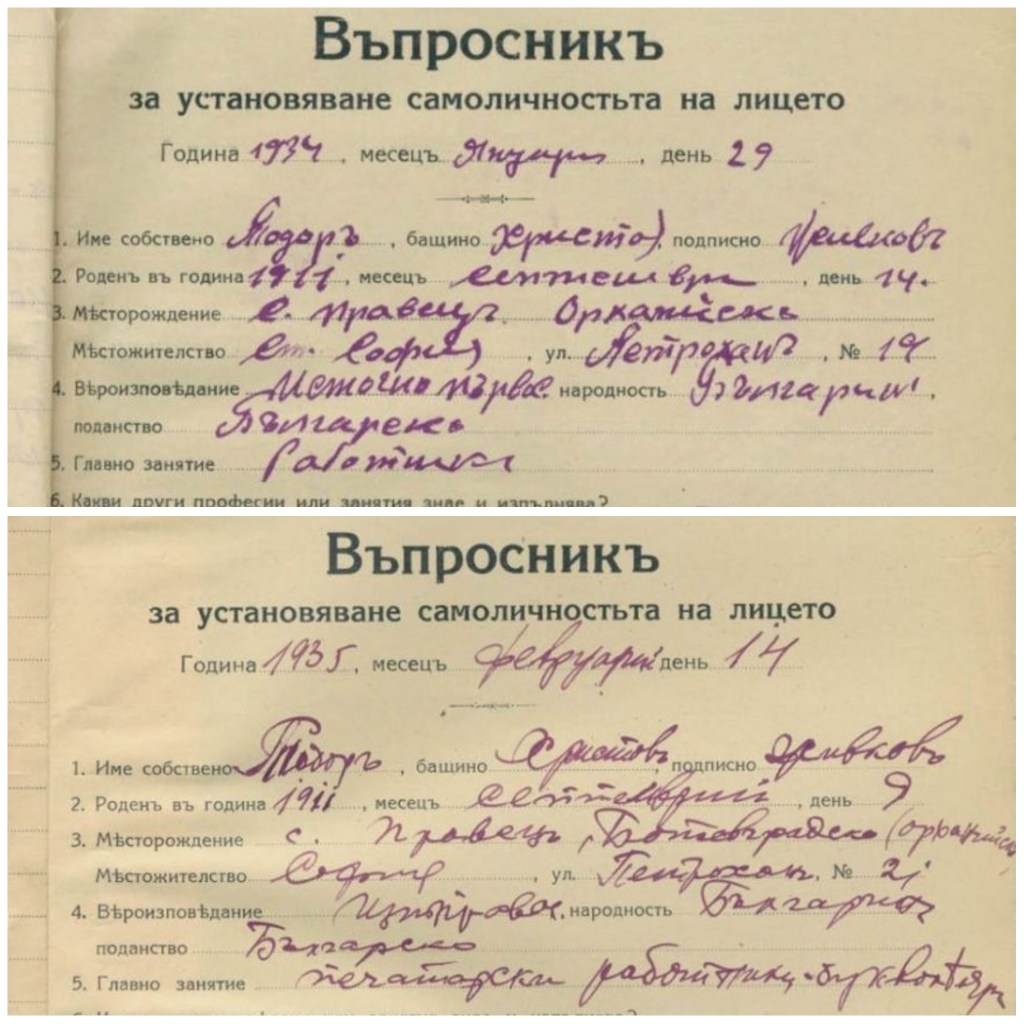 Въпросникъ
за установяване самоличностьта на лицето
Година 1934, месецъ Януари, день 29
1. Име собствено Тодоръ, бащино Христо), подписно Живковъ
2. Роденъ въ година 1911, месецъ септември, день 14.
3. Мѣсторождение с. Правецъ Орханийско
Мѣстожителство гр. София, ул. Петроханъ, № 19
4. Вѣроизповѣдание Источно първос. народность Българинъ,
поданство Българско
5. Главно занятие работникъ
6. Какви други професии или занятия знае и изпълнява?
Въпросникъ
за установяване самоличностьта на лицето
Година 1935, месецъ февруарий день 14
1. Име собствено Тодоръ, бащино Христовъ, подписно Живковъ
2. Роденъ въ година 1911, месецъ септемврий, день 9
3. Мѣсторождение с. Правецъ, Ботевградско (орханийско)
Мѣстожителство София, ул. Петроханъ, № 21
4. Вѣроизповѣдание народность Българинъ
поданство Българско
5. Главно занятие печатарски работникъ-